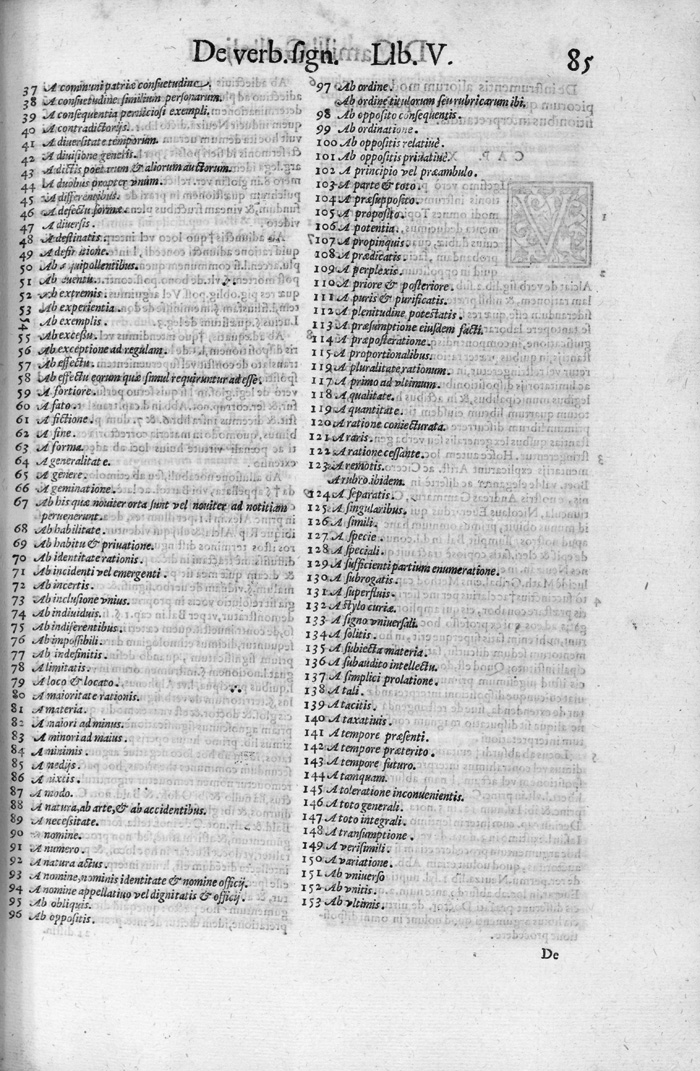 De verb. sign. Lib. V. 85
37 A communi patriæ consuetudine.
38 A consuetudine similium personarum.
39 A consequentia perniciosi exempli.
40 A contradictorijs.
41 A diuersitate temporum.
42 A diuisione generis.
43 A dictis poetarum & aliorum auctorum.
44 A duobus propter vnum.
45 A differentibus.
46 A defectu formæ.
47 A diuersis.
48 A destinatis.
49 A definitione.
50 Ab æquipollentibus.
51 Ab euentu.
52 Ab extremis.
53 Ab experientia.
54 Ab exemplis.
55 Ab excessu.
56 Ab exceptione ad regulam.
57 Ab effectu.
58 Ab effectu eorum quæ simul requiruntur ad esse.
59 A fortiore.
60 A fato.
61 A fictione.
62 A fine.
63 A forma.
64 A generalitate.
65 A genere.
66 A geminatione.
67 Ab his quæ nouiter orta sunt vel nouiter ad notitiam
peruenerunt.
68 Ab habilitate.
69 Ab habitu & priuatione.
70 Ab identitate rationis.
71 Ab incidenti vel emergenti.
72 Ab incertis.
73 Ab inclusione vnius.
74 Ab indiuiduis.
75 Ab indiferentibus.
76 Ab impossibili.
77 Ab indefinitis.
78 A limitatis.
79 A loco & locato.
80 A maioritate rationis.
81 A materia.
82 A maiori ad minus.
83 A minori ad maius.
84 A minimis.
85 A medijs.
86 A mixtis.
87 A modo.
88 A natura, ab arte, & ab accidentibus.
89 A necessitate.
90 A nomine.
91 A numero.
92 A natura actus.
93 A nomine, nominis identitate & nomine officij.
94 A nomine appellatiuo vel dignitatis & officij.
95 Ab obliquis.
96 Ab oppositis.
97 Ab ordine.
Ab ordine titulorum seu rubricarum ibi.
98 Ab opposito consequentis.
99 Ab ordinatione.
100 Ab oppositis relatiuè.
101 Ab oppositis priuatiuè.
102 A principio vel præambulo.
103 A parte & toto.
104 A præsupposito.
105 A proposito.
106 A potentia.
107 A propinquis.
108 A prædicatis.
109 A perplexis.
110 A priore & posteriore.
111 A puris & purificatis.
112 A plenitudine potestatis.
113 A præsumptione eiusdem facti.
114 A præposteratione.
115 A proportionalibus.
119 A pluralitate rationum.
117 A primo ad vltimum.
118 A qualitate.
119 A quantitate.
120 A ratione coniecturata.
121 A raris.
122 A ratione cessante.
123 A remotis.
A rubro ibidem.
124 A separatis.
125 A singularibus.
126 A simili.
127 A specie.
128 A speciali.
129 A sufficienti partium enumeratione.
130 A subrogatis.
131 A superfluis.
132 A stylo curiæ.
133 A signo vniuersali.
134 A solitis.
135 A subiecta materia.
136 A subaudito intellectu.
137 A simplici prolatione.
138 A tali.
139 A tacitis.
140 A taxatiuis.
141 A tempore præsenti.
142 A tempore præterito.
143 A tempore futuro.
144 A tamquam.
145 A toleratione inconuenientis.
146 A toto generali.
147 A toto integrali.
148 A transumptione.
149 A verisimili.
150 A variatione.
151 Ab vniuerso
152 Ab vnitis.
153 Ab vltimis.
De